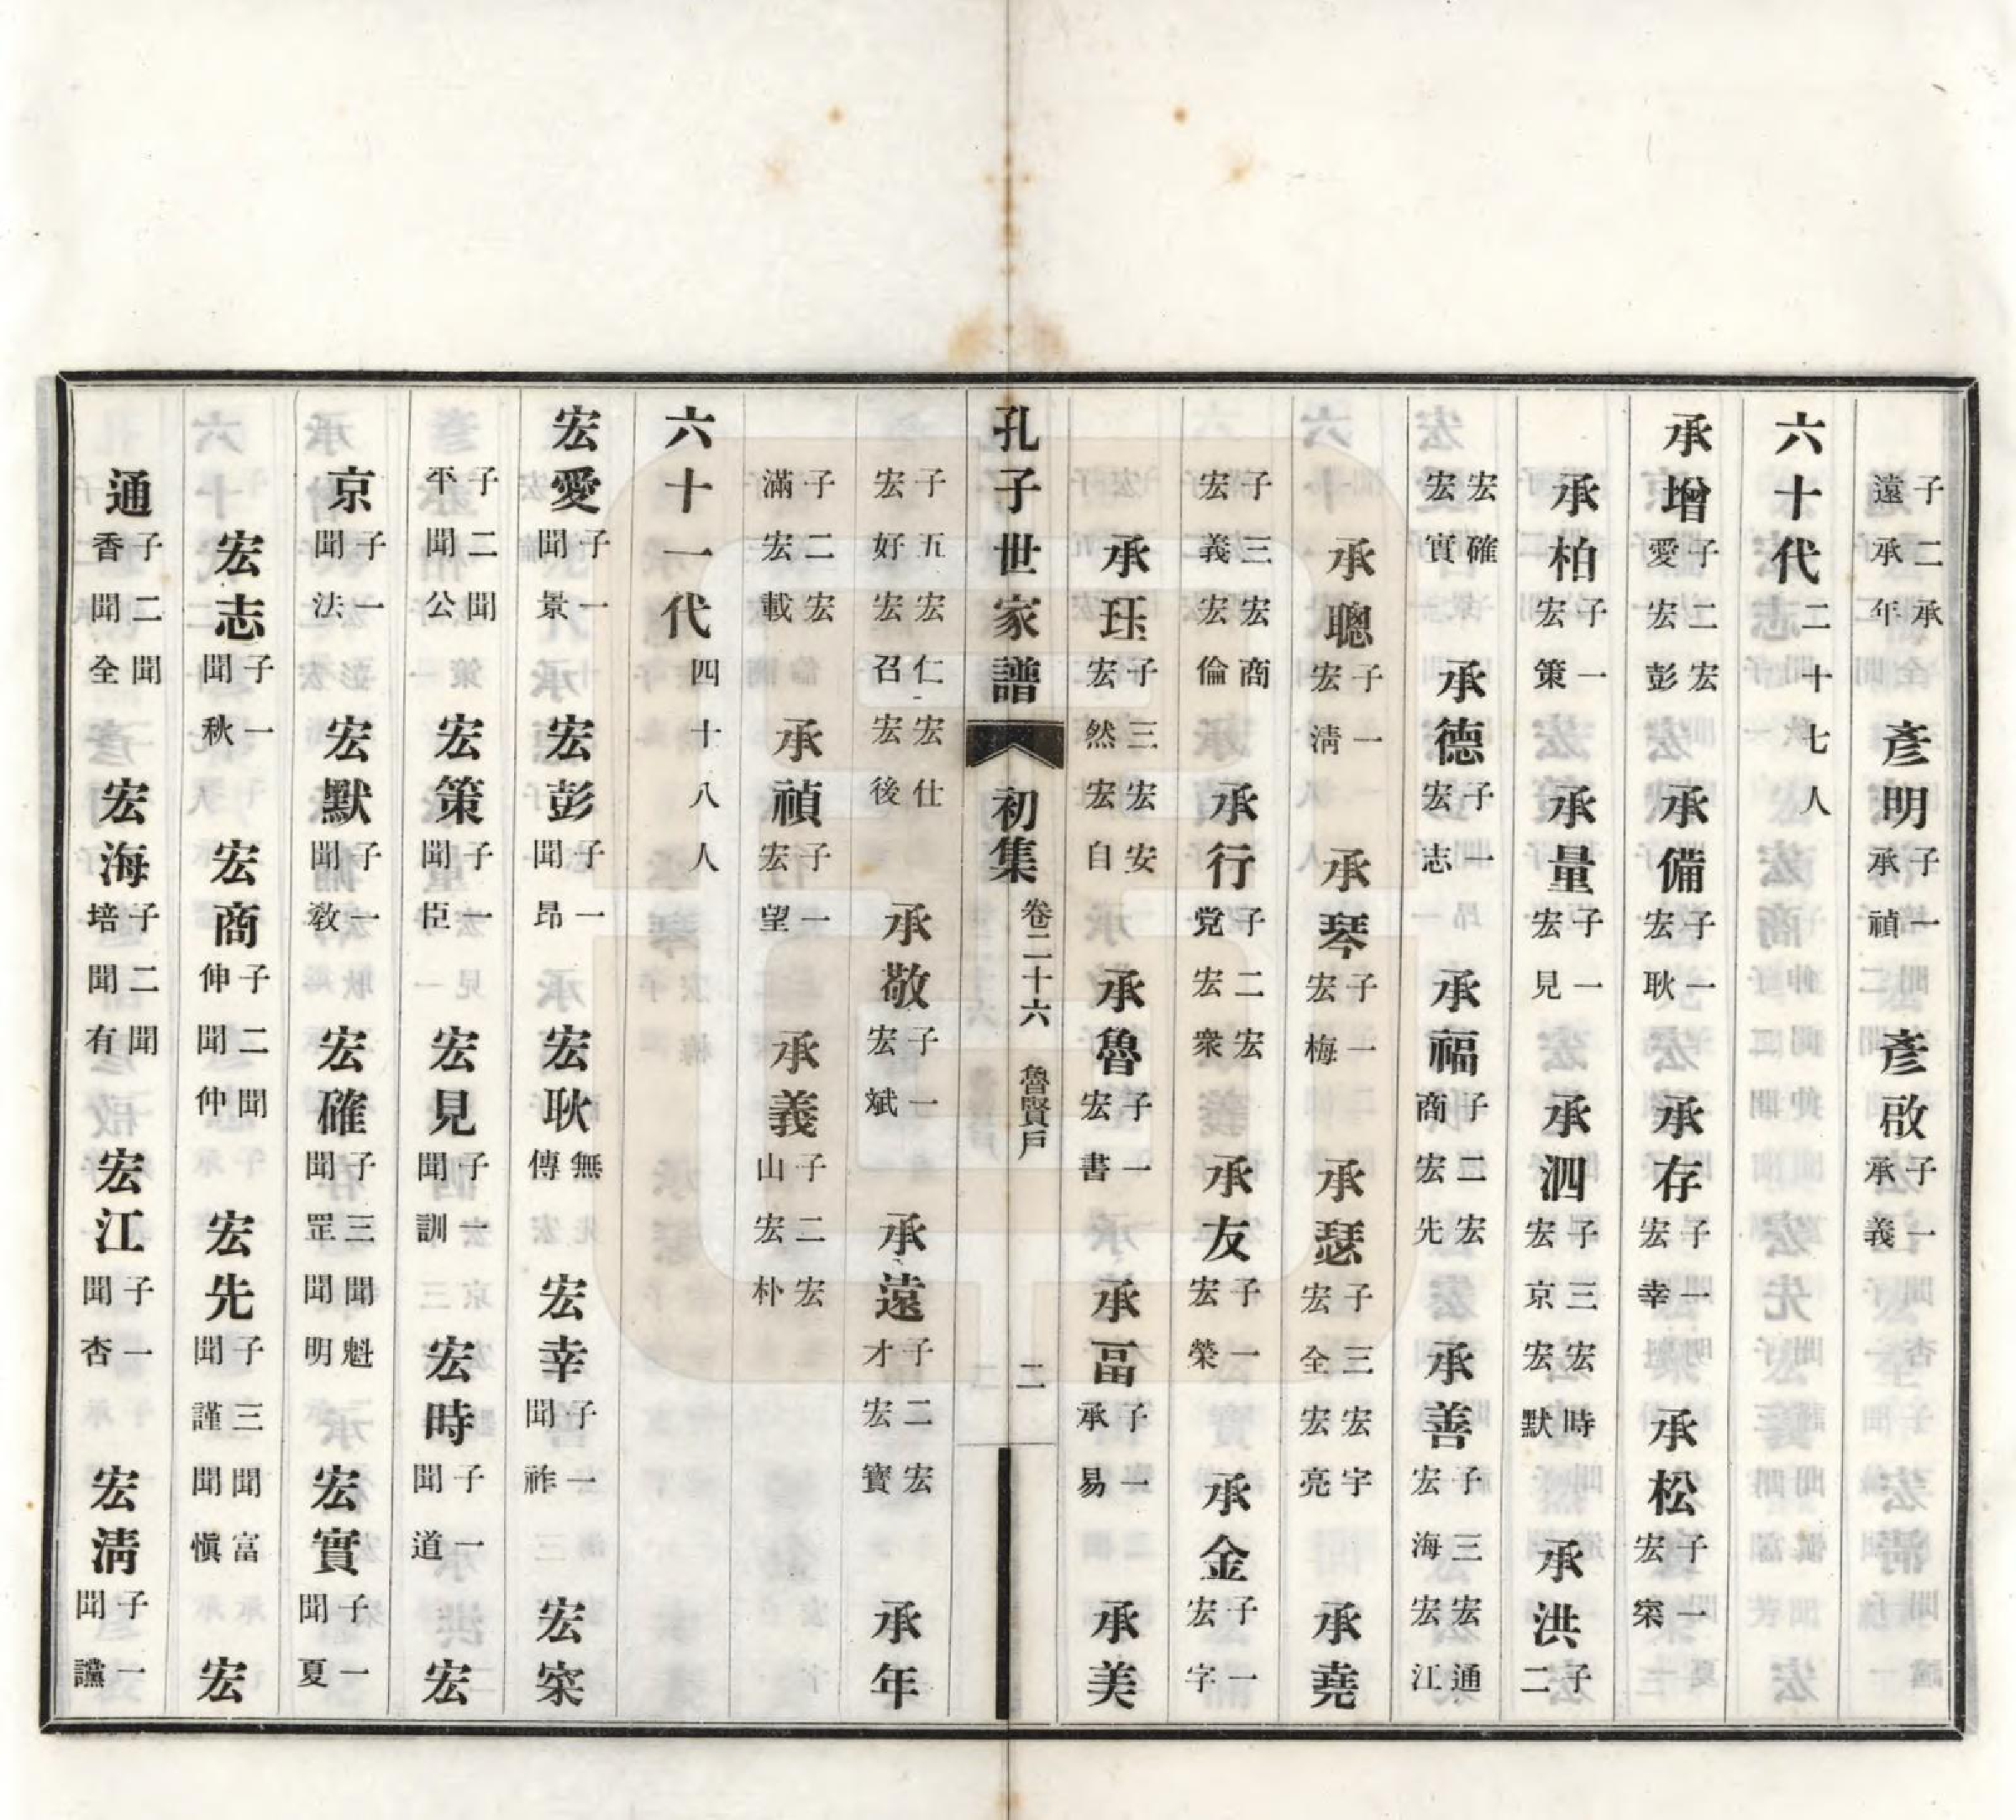 子二承遠承年 彥明 子一承禎 彥啟 子一承義
六十代 二十七人
承增 子二宏愛宏彭 承備 子一宏耿 承存 子一宏幸 承松 子一宏寀
承柏 子一宏策 承量 子一宏見 承泗 子三宏時宏京宏默 承洪 子二
宏確宏實 承德 子一宏志 承福 子二宏商宏先 承善 子三宏通宏海宏江
承聰 子一宏清 承琴 子一宏梅 承瑟 子三宏宇宏全宏亮 承堯
子三宏商宏義宏倫 承行 子二宏党宏衆 承友 子一宏榮 承金 子一宏字
承珏 子三宏安宏然宏自 承魯 子一宏書 承畐 子一承易 承美
孔子世家譜 初集 卷二十六 魯賢戶 二
子五宏仁宏仕宏好宏召宏後 承敬 子一宏斌 承遠 子二宏才宏寶 承年
子二宏滿宏載 承禎 子一宏望 承義 子二宏山宏朴
六十一代 四十八人
宏愛 子一聞景 宏彭 子一聞昂 宏耿 無傳 宏幸 子一聞祚 宏寀
子二聞平聞公 宏策 子一聞臣 宏見 子一聞訓 宏時 子一聞道 宏
京 子一聞法 宏默 子一聞敎 宏確 子三聞魁聞罡聞明 宏實 子一聞夏
宏志 子一聞秋 宏商 子二聞伸聞仲 宏先 子三聞富聞謹聞愼 宏
通 子二聞香聞全 宏海 子二聞培聞有 宏江 子一聞杏 宏清 子一聞讜